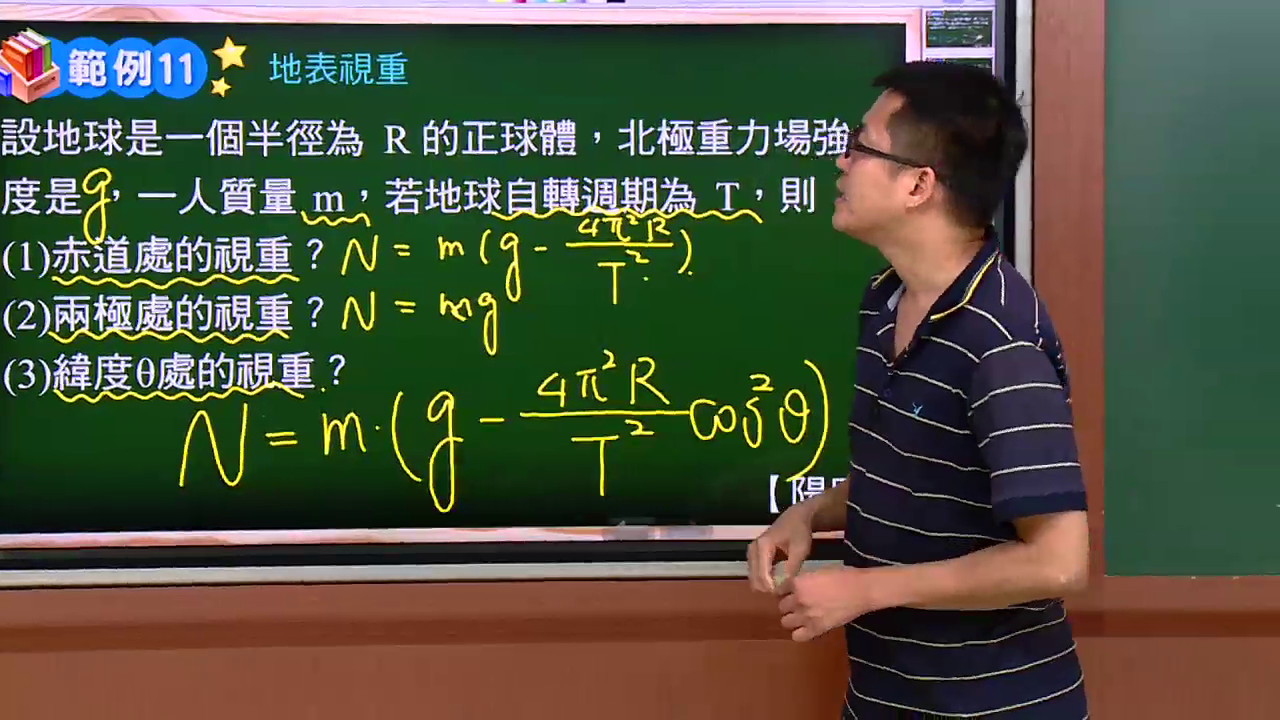 範例11 地表視重
設地球是一個半徑為 R 的正球體，北極重力場強
度是g，一人質量 m，若地球自轉週期為 T，則
(1)赤道處的視重？N = m(g - 4π²R/T²)
(2)兩極處的視重？N = mg
(3)緯度θ處的視重？
N = m·(g - 4π²R/T² cos²θ)
【陽